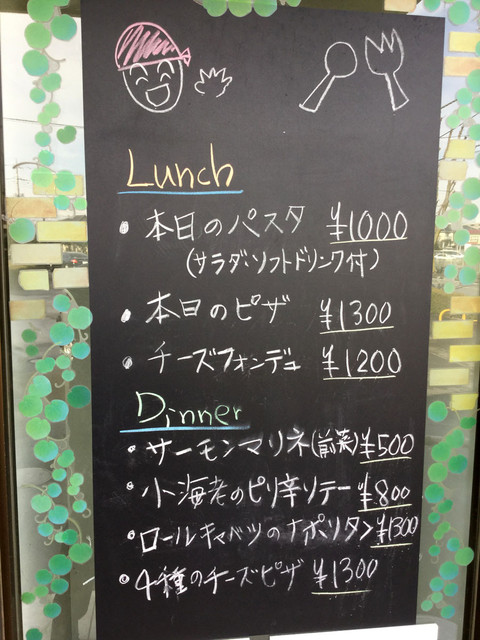 Lunch
・本日のパスタ ¥1000
(サラダ、ソフトドリンク付)
・本日のピザ ¥1300
・チーズフォンデュ ¥1200
Dinner
・サーモンマリネ(前菜)¥500
・小海老のピリ辛ソテー ¥800
・ロールキャベツのナポリタン ¥1300
・4種のチーズピザ ¥1300